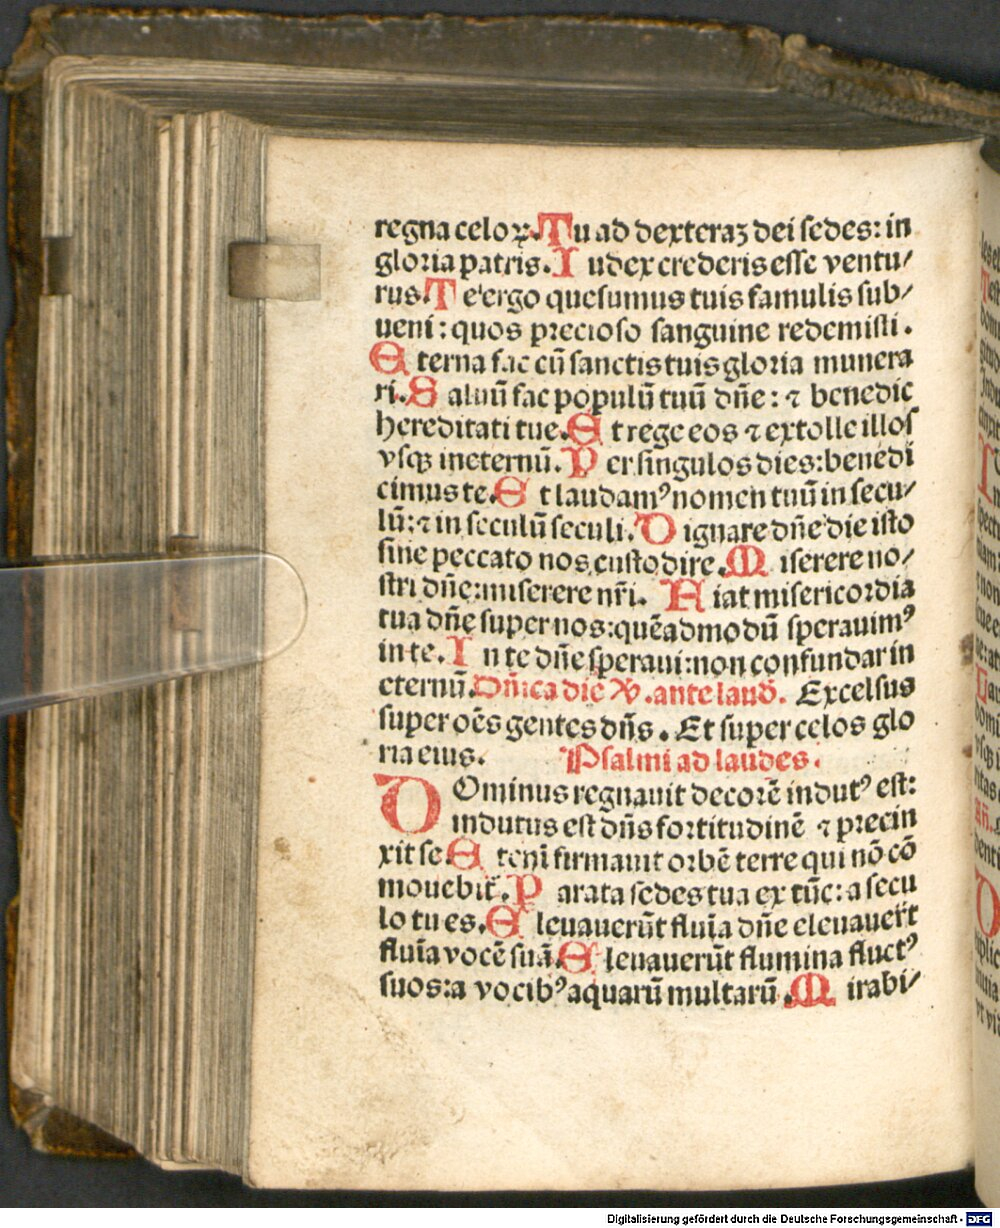 regna celoꝝ. Tu ad dexteraꝫ dei sedes: in
gloria patris. Iudex crederis esse ventu/
rus. Te ergo quesumus tuis famulis sub/
ueni: quos precioso sanguine redemisti.
Eterna fac cū sanctis tuis gloria munera
ri. Saluū fac populū tuū dn̄e: ⁊ benedic
hereditati tue. Et rege eos ⁊ extolle illos
vsqꝫ ineternū. Per singulos dies: benedi
cimus te. Et laudamꝰ nomen tuū in secu/
lū: ⁊ in seculū seculi. Dignare dn̄e die isto
sine peccato nos custodire. Miserere no/
stri dn̄e: miserere nr̄i. Fiat misericordia
tua dn̄e super nos: quēadmodū sperauimꝰ
in te. In te dn̄e speraui: non confundar in
eternū. Dn̄ica die ℟. ante laud̄. Excelsus
super oēs gentes dn̄s. Et super celos glo
ria eius. Psalmi ad laudes.
DOminus regnauit decorē indutꝰ est:
indutus est dn̄s fortitudinē ⁊ precin
xit se. Eteni firmauit orbē terre qui nō cō
mouebit᷑. Parata sedes tua ex tūc: a secu
lo tu es. Eleuauerūt fluīa dn̄e eleuauer̄t
fluīa vocē suā. Eleuauerūt flumina fluctꝰ
suos: a vocibꝰ aquarū multarū. Mirabi/
les
Digitalisierung gefördert durch die Deutsche Forschungsgemeinschaft - DFG